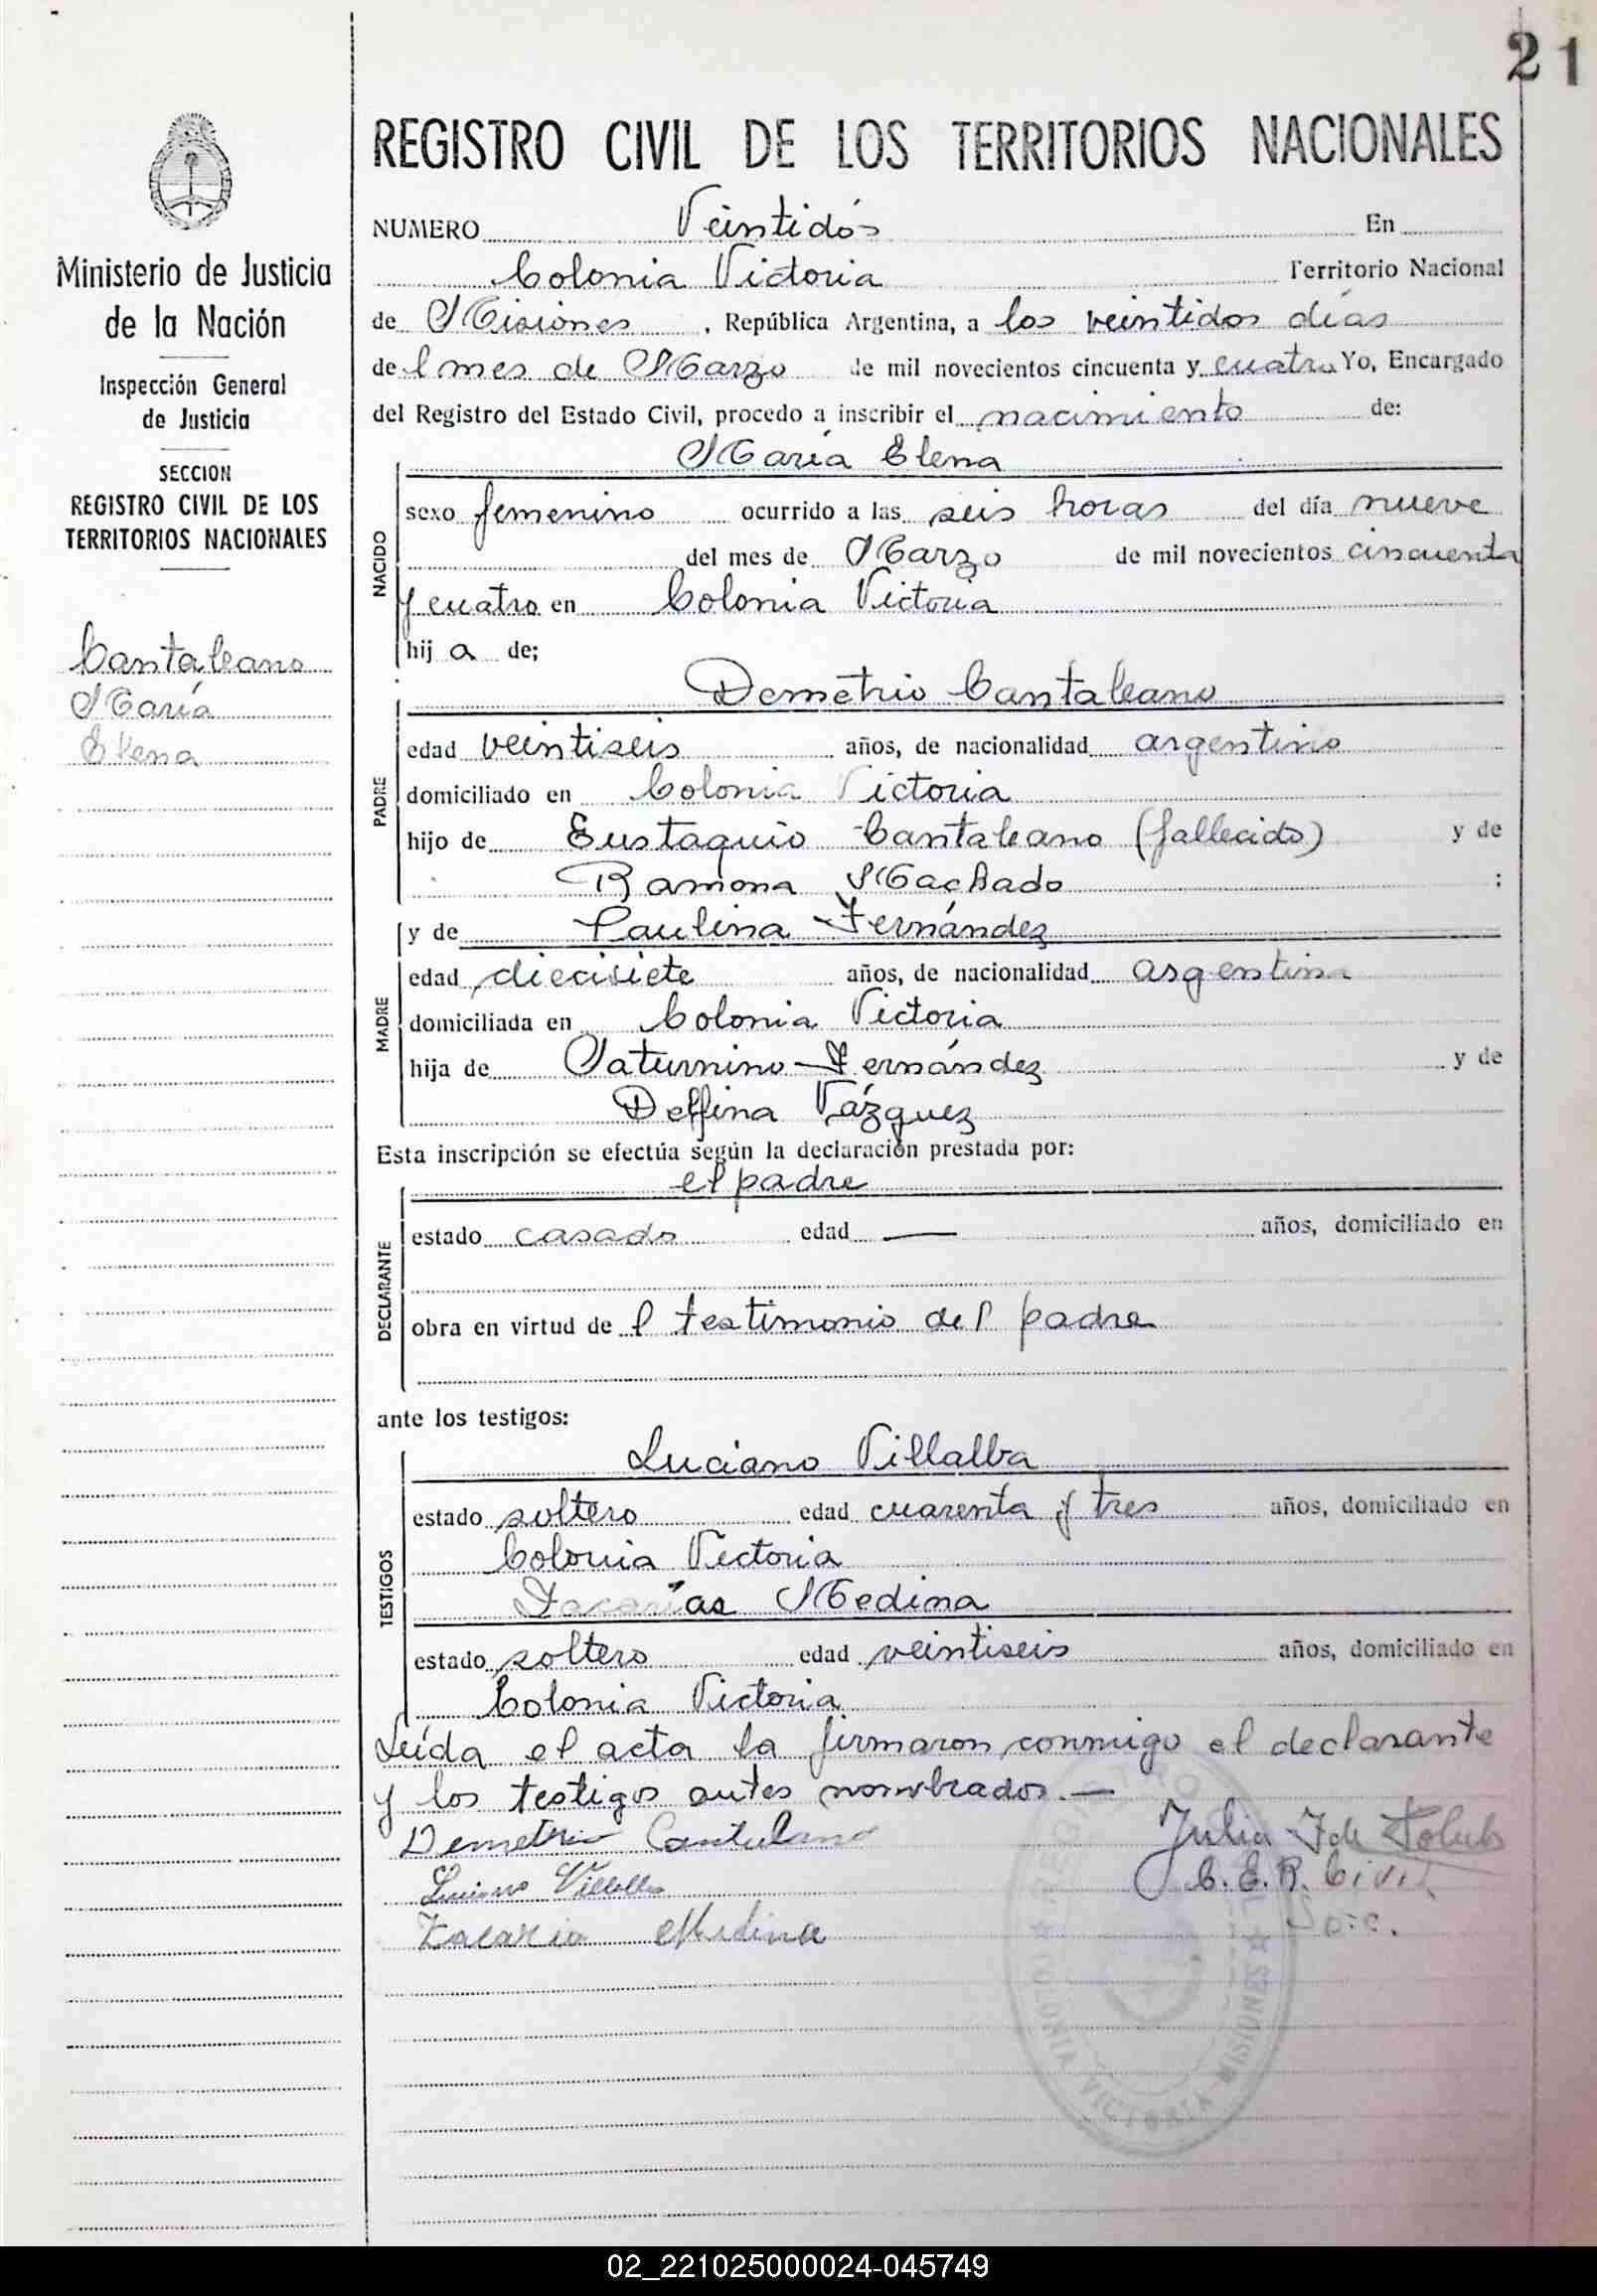 21
REGISTRO CIVIL DE LOS TERRITORIOS NACIONALES
Ministerio de Justicia
de la Nación
Inspección General
de Justicia
SECCION
REGISTRO CIVIL DE LOS
TERRITORIOS NACIONALES
Cantaleano
María
Elena
NUMERO Veintidós En
Colonia Victoria Territorio Nacional
de Misiones, República Argentina, a los veintidos días
del mes de Marzo de mil novecientos cincuenta y cuatro Yo, Encargado
del Registro del Estado Civil, procedo a inscribir el nacimiento de:
María Elena
NACIDO
sexo femenino ocurrido a las seis horas del día nueve
del mes de Marzo de mil novecientos cincuenta
y cuatro en Colonia Victoria
hija de;
Demetrio Cantaleano
PADRE
edad veintiseis años, de nacionalidad argentino
domiciliado en Colonia Victoria
hijo de Eustaquio Cantaleano (fallecido) y de
Ramona Machado :
y de Paulina Fernández
MADRE
edad diecisiete años, de nacionalidad argentina
domiciliada en Colonia Victoria
hija de Saturnino Fernández y de
Delfina Vázquez
Esta inscripción se efectúa según la declaración prestada por:
el padre
DECLARANTE
estado casado edad — años, domiciliado en
obra en virtud del testimonio del padre
ante los testigos:
Luciano Villalba
TESTIGOS
estado soltero edad cuarenta y tres años, domiciliado en
Colonia Victoria
Zacarías Medina
estado soltero edad veintiseis años, domiciliado en
Colonia Victoria
Leída el acta la firmaron conmigo el declarante
y los testigos antes nombrados.—
Demetrio Cantaleano
Julia F de
Luciano Villalba
C. E. R. Civil
Zacaria Medina
REGISTRO CIVIL
COLONIA VICTORIA - MISIONES
02_221025000024-045749